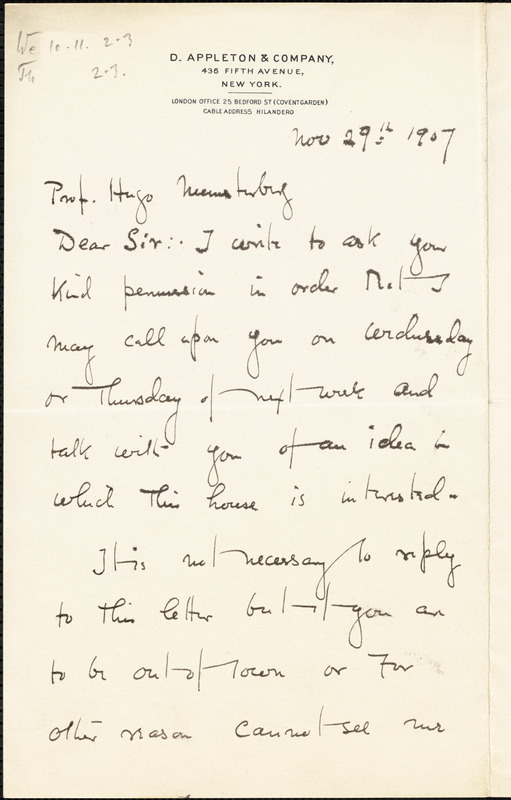 We 10-11. 2-3
Th 2-3.
D. APPLETON & COMPANY,
436 FIFTH AVENUE,
NEW YORK.
LONDON OFFICE 25 BEDFORD ST (COVENT GARDEN)
CABLE ADDRESS HILANDERO
Nov 29th 1907
Prof. Hugo Muensterberg
Dear Sir:- I write to ask your
kind permission in order that I
may call upon you on Wednesday
or Thursday of next week and
talk with you of an idea in
which this house is interested.
It is not necessary to reply
to this letter but if you are
to be out of town or for
other reason cannot see me